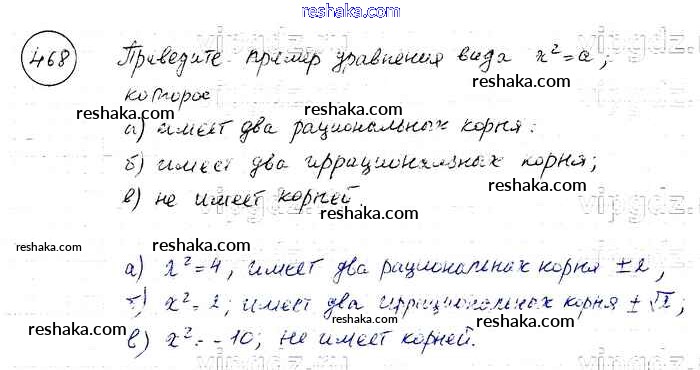 reshaka.com
468 Приведите пример уравнения вида x² = a,
которое
reshaka.com
reshaka.com
а) имеет два рациональных корня:
б) имеет два иррациональных корня;
reshaka.com
в) не имеет корней.
reshaka.com
reshaka.com
reshaka.com
а) x² = 4, имеет два рациональных корня ±2,
б) x² = 2; имеет два иррациональных корня ±√2;
reshaka.com
reshaka.com
в) x² = -10; не имеет корней.
reshaka.com